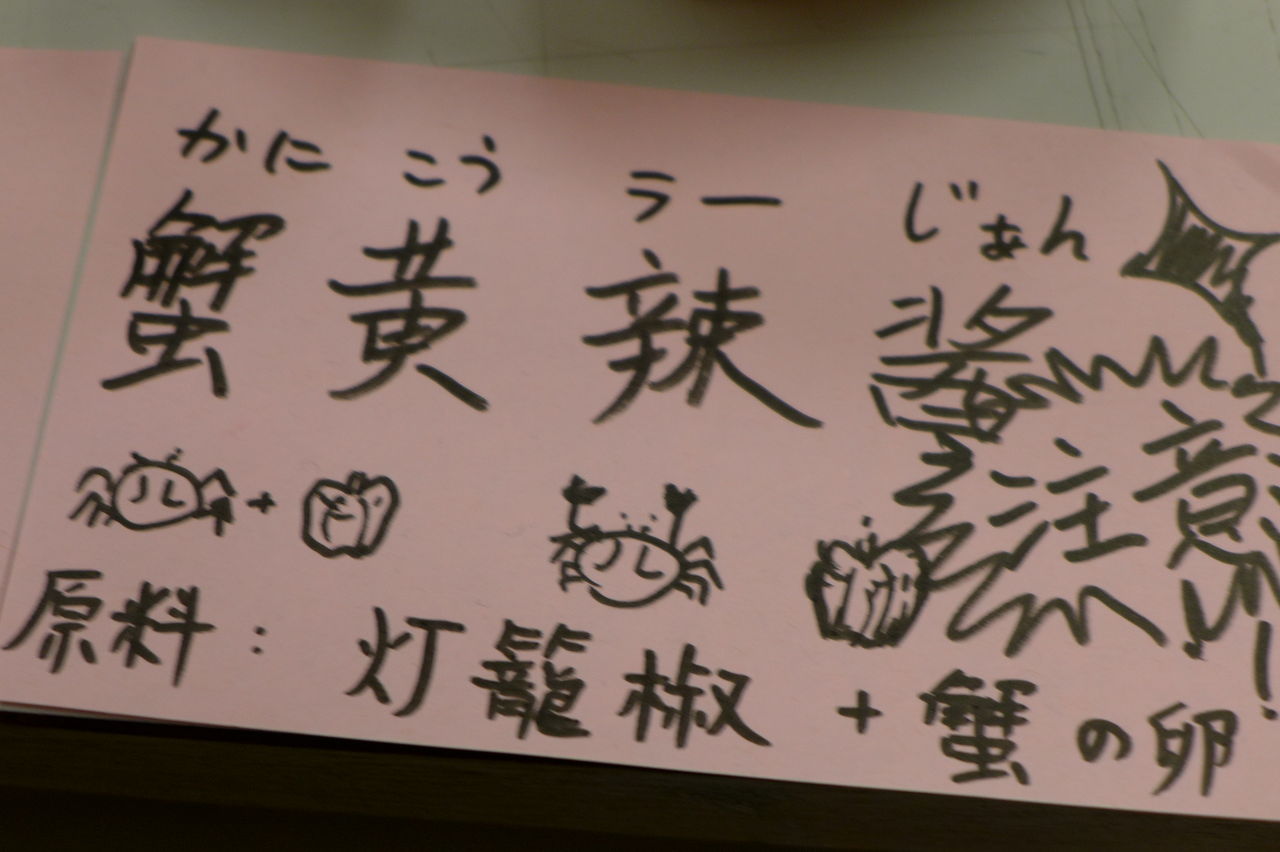 かに こう ラー じぁん
蟹黄辣醤
注意!!
+
原料:灯籠椒+蟹の卵